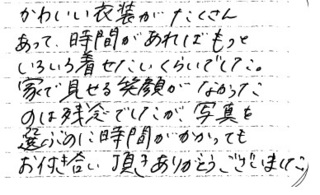 かわいい衣装がたくさん
あって、時間があればもっと
いろいろ着せたいくらいでした。
家で見せる笑顔がなかった
のは残念でしたが、写真を
選ぶのに時間がかかっても
お付き合い頂きありがとうございました